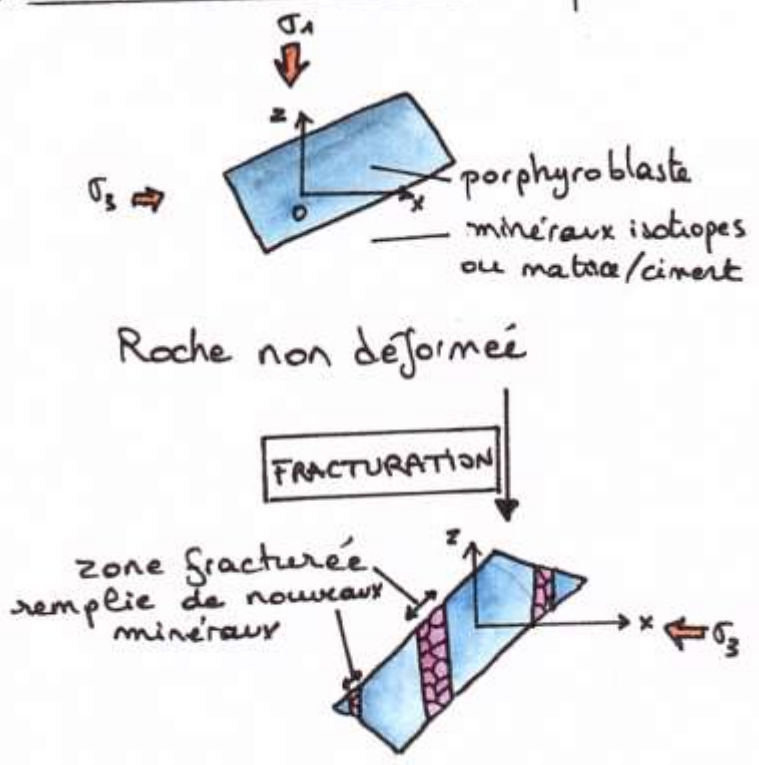 σ1
z
σ3
O
x
porphyroblaste
minéraux isotropes
ou matrice/ciment
Roche non déformeé
FRACTURATION
zone fracturée
remplie de nouveaux
minéraux
z
x
σ3